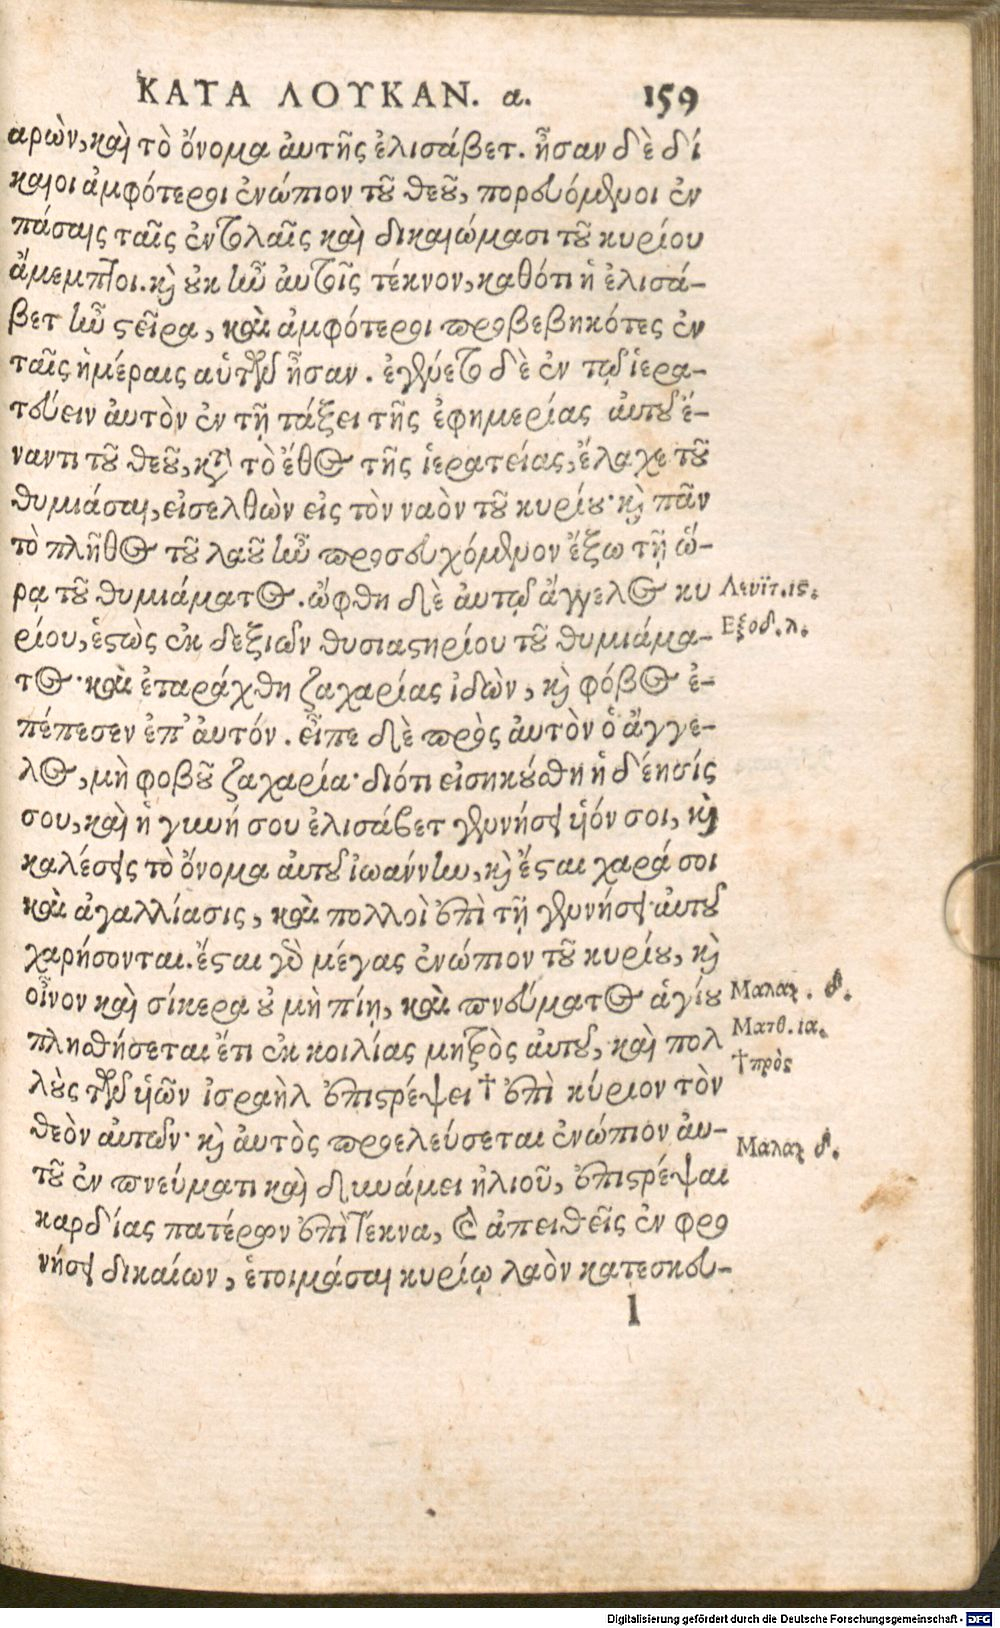 ΚΑΤΑ ΛΟΥΚΑΝ. α. 159
αρὼν, καὶ τὸ ὄνομα ἀυτῆς ἐλισάβετ. ἦσαν δὲ δί
καιοι ἀμφότεροι ἐνώπιον τοῦ θεοῦ, πορευόμενοι ἐν
πάσαις ταῖς ἐντολαῖς καὶ δικαιώμασι τοῦ κυρίου
ἄμεμπτοι. καὶ οὐκ ἦν ἀυτοῖς τέκνον, καθότι ἡ ἐλισά-
βετ ἦν στεῖρα, καὶ ἀμφότεροι προβεβηκότες ἐν
ταῖς ἡμέραις αὑτῶν ἦσαν. ἐγένετο δὲ ἐν τῷ ἱερα-
τεύειν ἀυτὸν ἐν τῇ τάξει τῆς ἐφημερίας ἀυτοῦ ἔ-
ναντι τοῦ θεοῦ, κατὰ τὸ ἔθος τῆς ἱερατείας, ἔλαχε τοῦ
θυμιάσαι, εἰσελθὼν εἰς τὸν ναὸν τοῦ κυρίου· καὶ πᾶν
τὸ πλῆθος τοῦ λαοῦ ἦν προσευχόμενον ἔξω τῇ ὥ-
ρᾳ τοῦ θυμιάματος. ὤφθη δὲ ἀυτῷ ἄγγελος κυ
Λευϊτ. ις.
ρίου, ἑστὼς ἐκ δεξιῶν θυσιαστηρίου τοῦ θυμιάμα-
Εξοδ. λ.
τος· καὶ ἐταράχθη ζαχαρίας ἰδὼν, καὶ φόβος ἐ-
πέπεσεν ἐπ' ἀυτόν. εἶπε δὲ πρὸς ἀυτὸν ὁ ἄγγε-
λος, μὴ φοβοῦ ζαχαρία· διότι εἰσηκούσθη ἡ δέησίς
σου, καὶ ἡ γυνή σου ἐλισάβετ γεννήσει υἱόν σοι, καὶ
καλέσεις τὸ ὄνομα ἀυτοῦ ἰωάννην, καὶ ἔσται χαρά σοι
καὶ ἀγαλλίασις, καὶ πολλοὶ ἐπὶ τῇ γεννήσει ἀυτοῦ
χαρήσονται. ἔσται γὰρ μέγας ἐνώπιον τοῦ κυρίου, καὶ
οἶνον καὶ σίκερα οὐ μὴ πίῃ, καὶ πνεύματος ἁγίου
Μαλαχ. δ.
πλησθήσεται ἔτι ἐκ κοιλίας μητρὸς ἀυτοῦ, καὶ πολ
Ματθ. ια.
λοὺς τῶν υἱῶν ἰσραὴλ ἐπιστρέψει † ἐπὶ κύριον τὸν
†πρὸς
θεὸν ἀυτῶν· καὶ ἀυτὸς προελεύσεται ἐνώπιον ἀυ-
Μαλαχ δ.
τοῦ ἐν πνεύματι καὶ δυνάμει ἠλιοῦ, ἐπιστρέψαι
καρδίας πατέρων ἐπὶ τέκνα, καὶ ἀπειθεῖς ἐν φρο
νήσει δικαίων, ἑτοιμάσαι κυρίῳ λαὸν κατεσκευ-
l
Digitalisierung gefördert durch die Deutsche Forschungsgemeinschaft - DFG